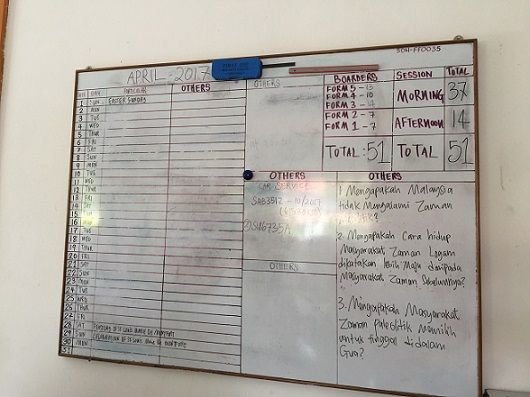 APRIL - 2017
DATE DAY PARTICULAR OTHERS
1 SUN EASTER SUNDAY
2 MON
3 TUE
4 WED
5 THUR
6 FRI
7 SAT
8 SUN
9 MON
10 TUE
11 WED
12 THUR
13 FRI
14 SAT
15 SUN
16 MON
17 TUE
18 WED
19 THUR
20 FRI
21 SAT
22 SUN
23 MON
24 TUE
25 WED
26 THUR
27 FRI
28 SAT
29 SUN
30 MON
31
OTHERS
SOH-FF0035
BOARDERS SESSION TOTAL
FORM 5 - 13
FORM 4 - 10
FORM 3 - 14
FORM 2 - 7
FORM 1 - 7
MORNING 37
AFTERNOON 14
TOTAL : 51 TOTAL 51
OTHERS
CAR SERVICE
SAB3512 - 10/2017
OTHERS
OTHERS
1. Mengapakah Malaysia
tidak Mengalami Zaman
2. Mengapakah Cara hidup
Masyarakat Zaman Logam
dikatakan lebih Maju daripada
Masyarakat Zaman Sebelumnya?
3. Mengapakah Masyarakat
Zaman paleolitik Memilih
untuk tinggal didalam
Gua?